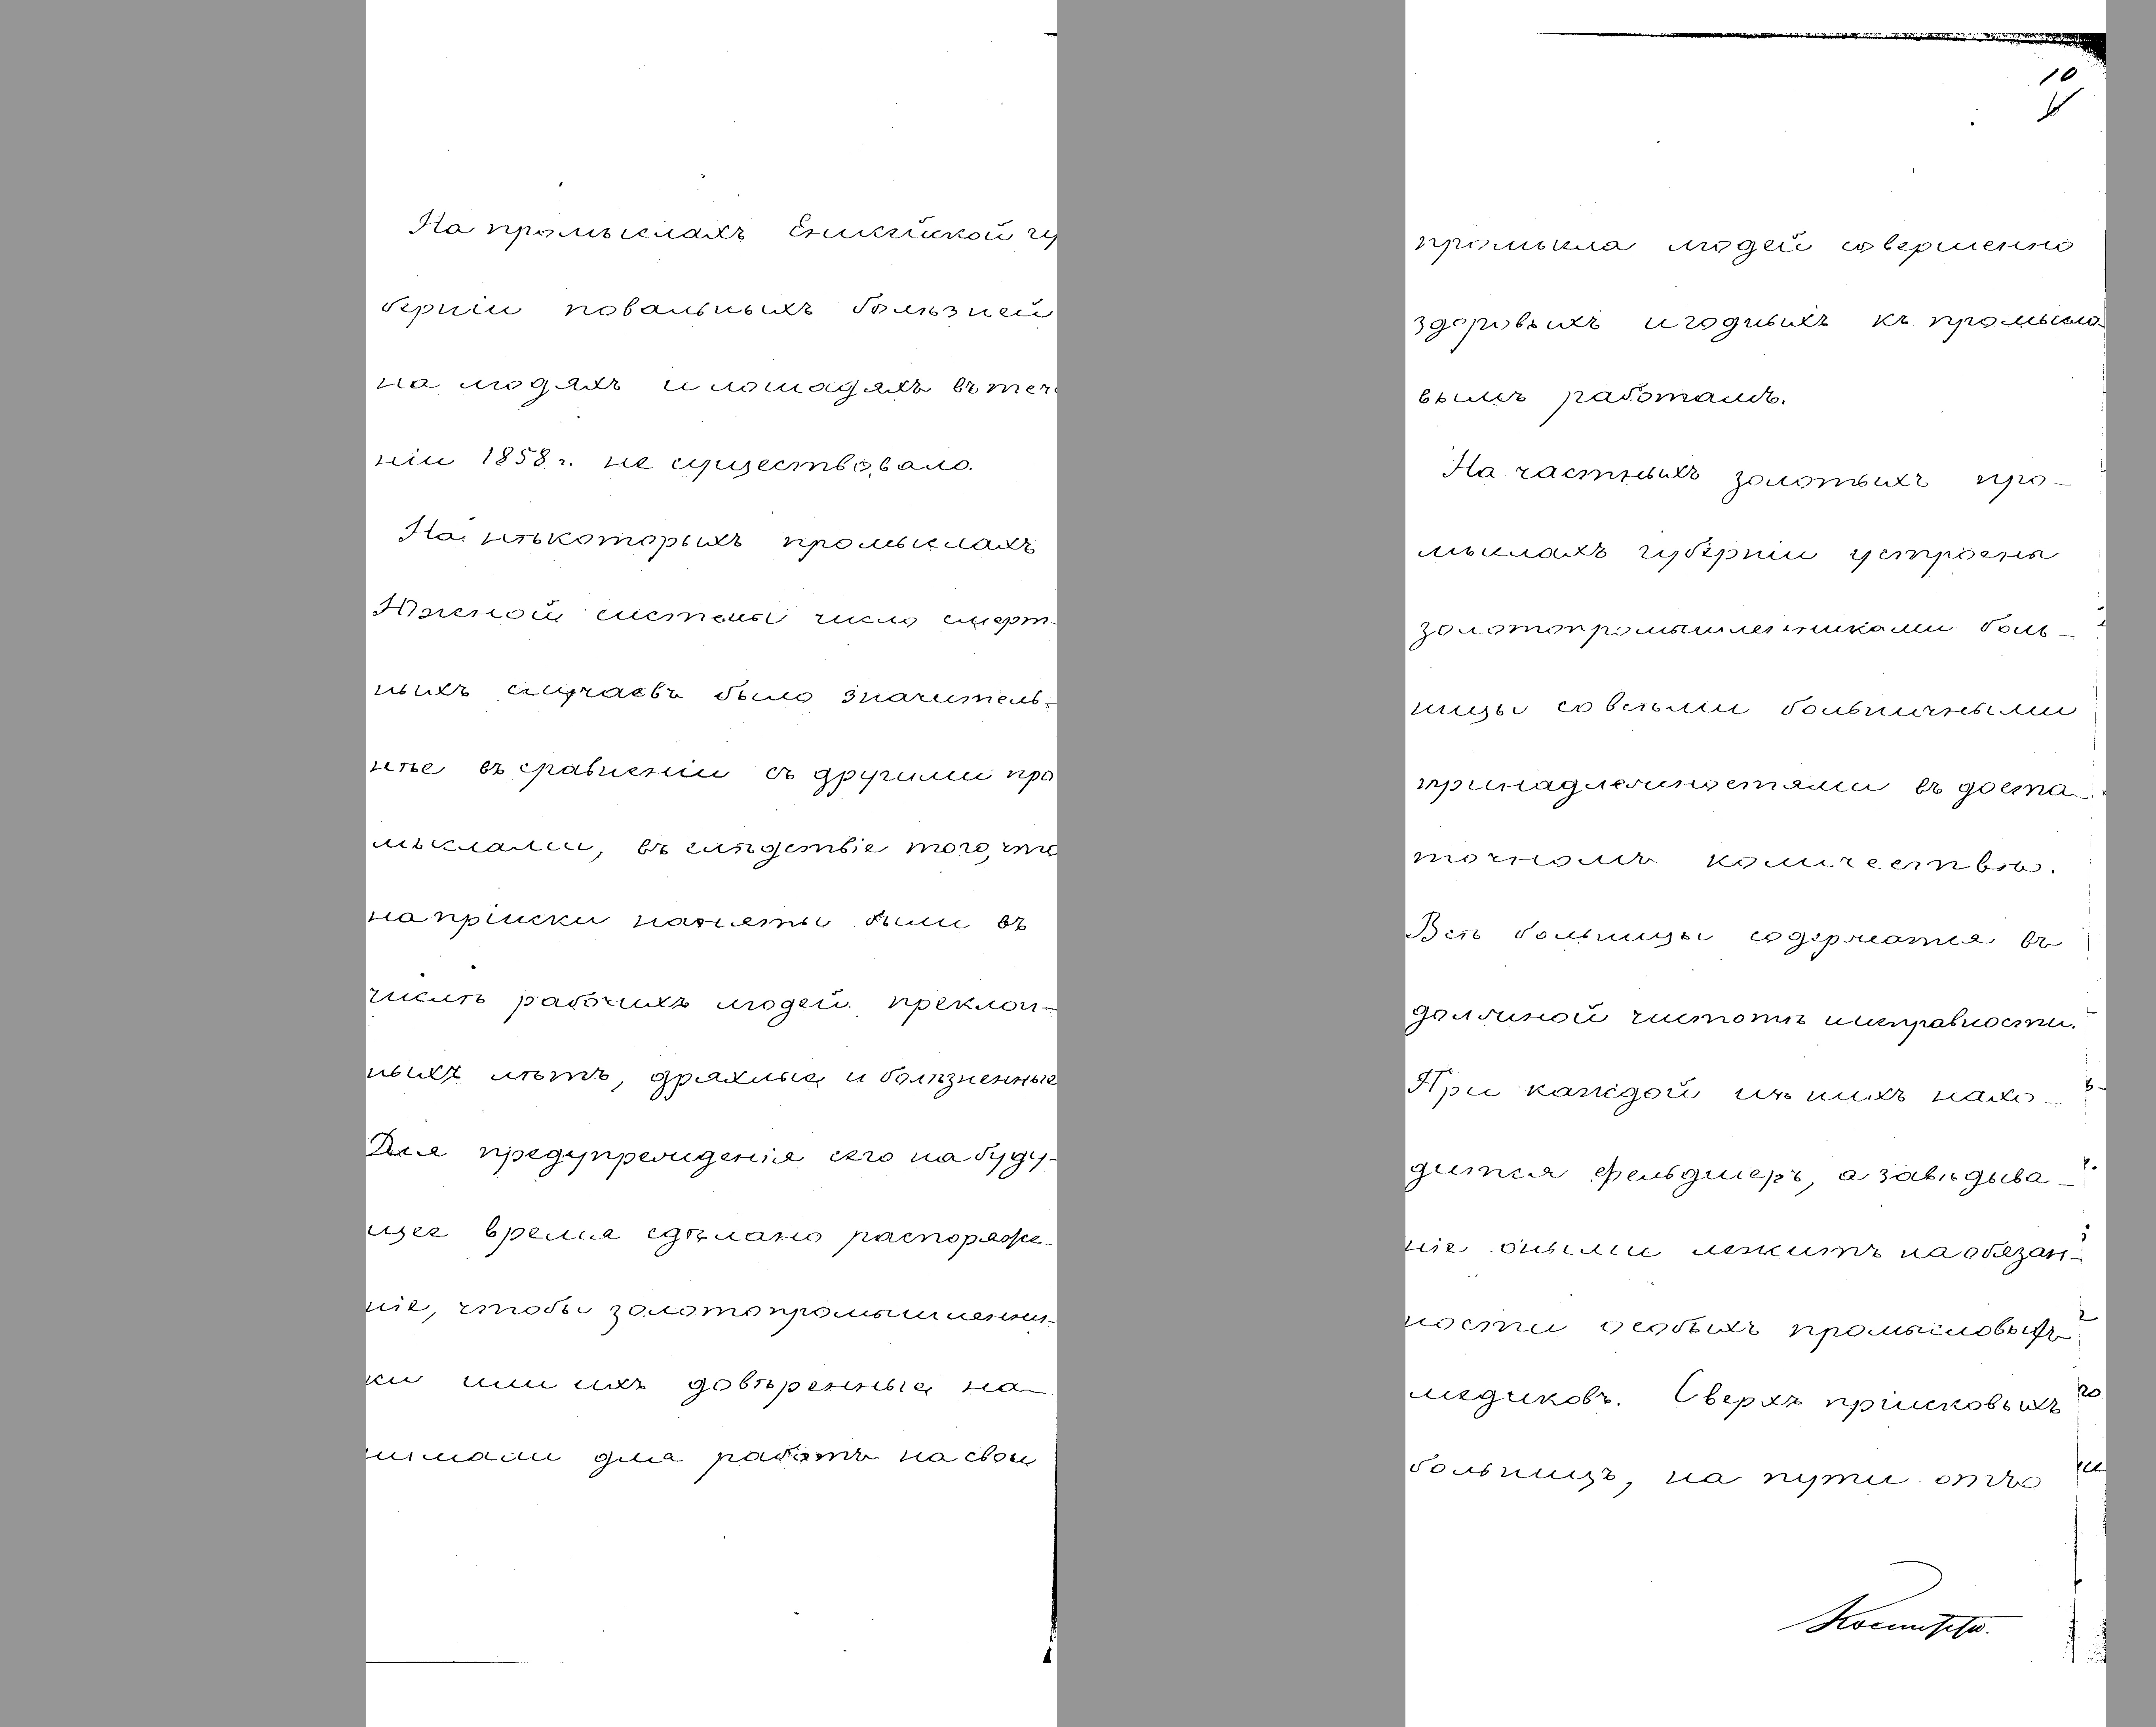 На промыслахъ Енисейской гу
берніи повальныхъ болѣзней
на людяхъ и лошадяхъ въ тече
ніи 1858 г. не существовало.
На нѣкоторыхъ промыслахъ
Южной системы число смерт-
ныхъ случаевъ было значитель-
нѣе въ сравненіи съ другими про
мыслами, въ слѣдствіе того, что
на пріиски наняты были въ
числѣ рабочихъ людей преклон-
ныхъ лѣтъ, дряхлые и болѣзненные
Для предупрежденія сего на буду-
щее время сдѣлано распоряже-
ніе, чтобы золотопромышленни-
ки или ихъ довѣренные на-
нимали для работъ на свои
10
промысла людей совершенно
здоровыхъ и годныхъ къ промысло-
вымъ работамъ.
На частныхъ золотыхъ про-
мыслахъ губерніи устроены
золотопромышленниками боль-
ницы со всѣми больничными
принадлежностями въ доста-
точномъ количествѣ.
Всѣ больницы содержатся въ
должной чистотѣ и исправности.
При каждой изъ нихъ нахо-
дится фельдшеръ, а завѣдыва-
ніе оными лежитъ на обязан-
ности особыхъ промысловыхъ
медиковъ. Сверхъ пріисковыхъ
больницъ, на пути отъ